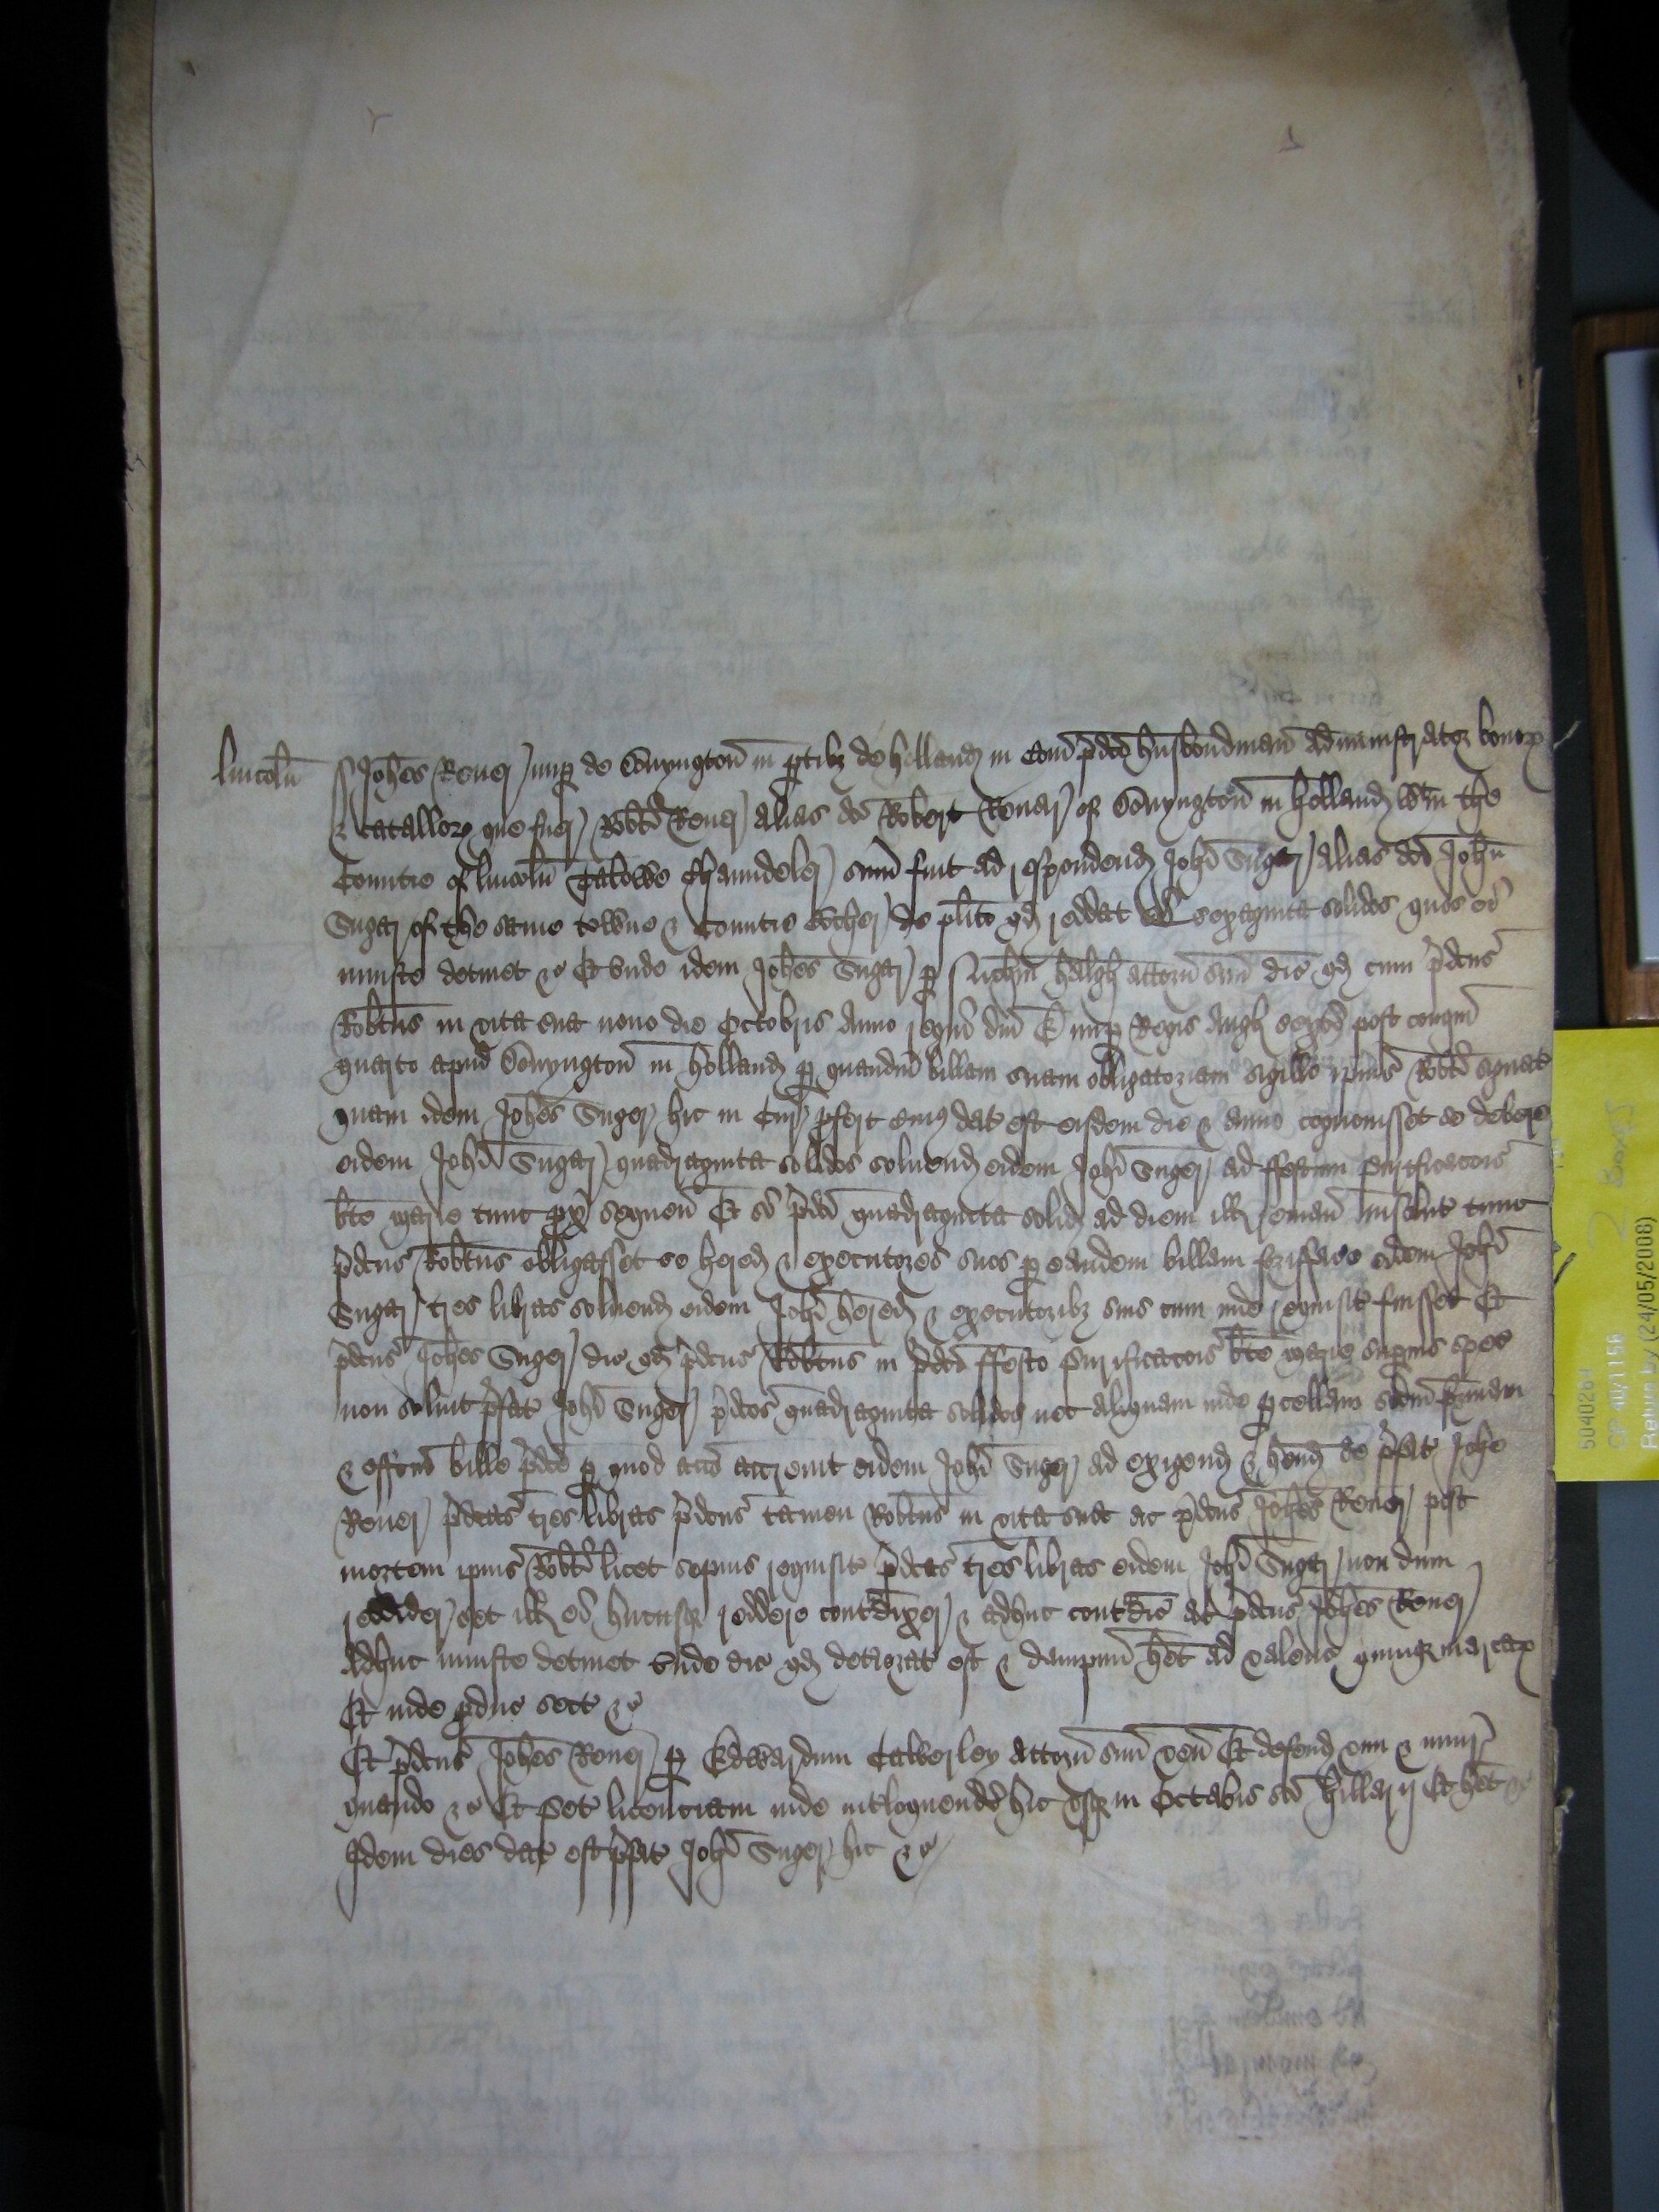 lincoln̄ ss Joħes Reuer nup de Donyngton̄ in ptibʒ de holland in Com̄ p̄dc̄o husbondman Administrator bonoꝝ
& catalloꝝ que fuer Robti Reuer alias dc̄i Robert Reuar of Donyngton̄ in holland wtin the
Countie of lincoln̄ Talowe Chaundeler sum̄ fuit ad respondend Joħi Sugar alias dc̄o John̄
Sugar of the same towne & Countie Bocher de plito qd reddat ei sexaginta solidos quos ei
iniuste detinet &c Et vnde idem Joħes Sugar p attorn̄ suū dic̄ qd cum p̄dcus
Robtus in vita sua nono die Octobris Anno regni dni E nup Regis Angł post conqm̄
quarto apud Donyngton̄ in holland p quandm̄ billam suam obligatoriam sigillo ipius Robti signat
quam idem Joħes Suger hic in Cur pfert cuius dat est eisdem die & anno cognouisset se debere
eidem Joħi Sugar quadraginta solidos soluend eidem Joħi Suger ad ffestum Purificacois
bte marie tunc px̄ sequen̄ Et si p̄dci quadraginta solid ad diem ilł insolut tunc
p̄dcus Robtus obligasset se hered & executores suos p eandem billam forisfare eidem Joħi
Sugar tres libras soluend eidem Joħi hered & executoribʒ suis cum inde requisit fuisset Et
p̄dcus Joħes Suger dic̄ qd p̄dcus Robtus in p̄dco ffesto Purificacois bte marie supius spec
non soluit p̄fat Joħi Suger p̄dcos quadraginta solidos nec aliquam inde pcellam scdm formam
& effcm̄ bille p̄dce p quod accō accreuit eidem Joħi Suger ad exigend & hend de p̄fat Joħe
Reuer p̄dcas tres libras p̄dcus tamen Robtus in vita sua ac p̄dcus Joħes Reuer post
mortem ipius Robti licet sepius requisit p̄dcas tres libras eidem Joħi Sugar non dum
reddider set ilł ei hucusqʒ reddere contdixer & adhuc contdic̄ ac p̄dcus Joħes Reuer
Adhuc iniuste detinet vnde dic̄ qd deteriorat est & dampnū het ad valenc quinqʒ marcaꝝ
Et inde pduc sect &c
Et p̄dcus Joħes Reuer p Edwardum attorn̄ suū ven̄ Et defend vim & iniur
quando &c Et Pet licenciam inde intloquendi hic vsqʒ in Octabis sci hillarij Et het &c
Idem dies dat est p̄fat Joħi Suger hic &c
5040264
CP 40/1156
Return by (24/05/2008)
2 Boxes